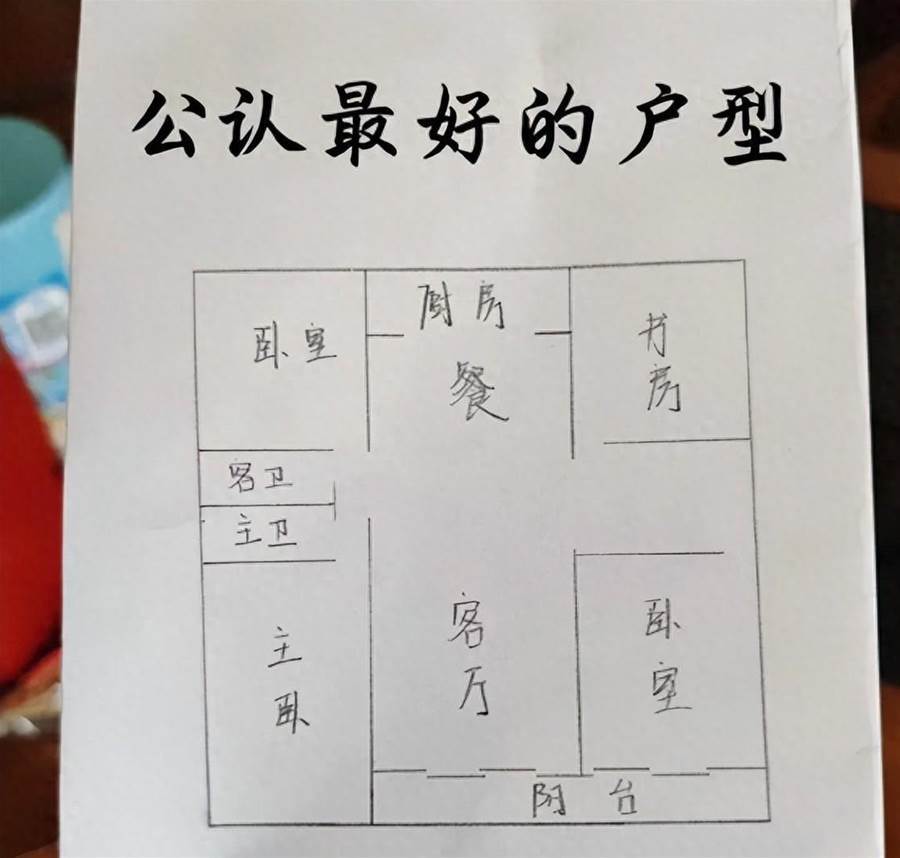 公认最好的户型
卧室
厨房
书房
餐
客卫
主卫
主卧
客厅
卧室
阳台